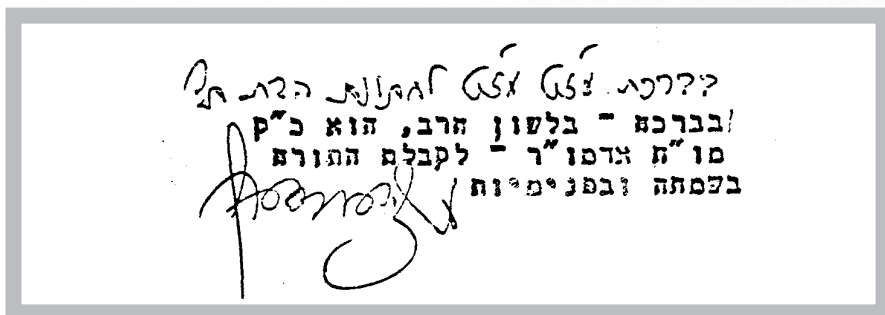 בברכת מז"ט מז"ט לחתונת הבת תחי'
/בברכה – בלשון הרב, הוא כ"ק
מו"ח אדמו"ר – לקבלת התורה
בשמחה ובפנימיות/